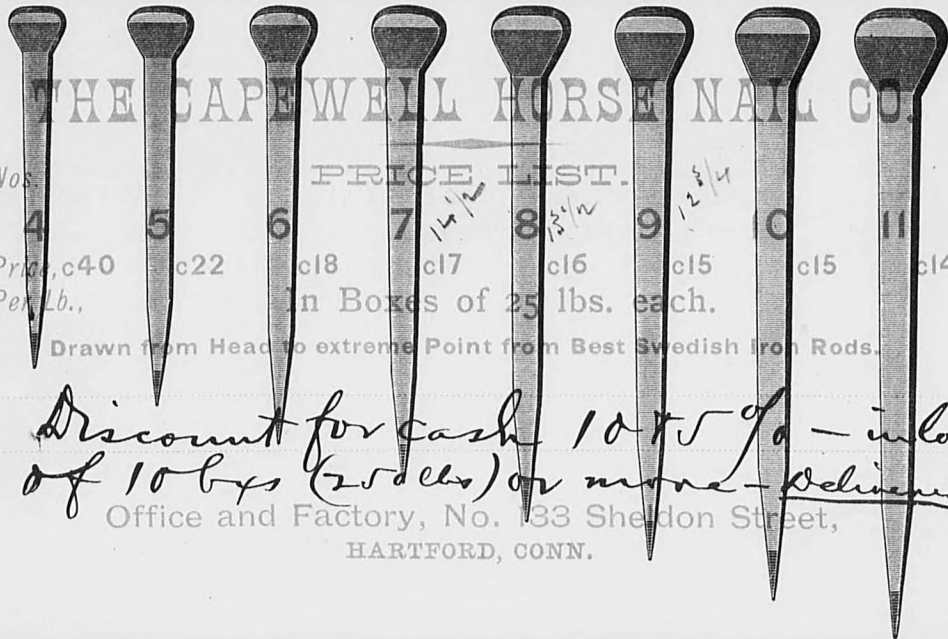 THE CAPEWELL HORSE NAIL CO.
PRICE LIST.
Nos. 4 5 6 7 14 1/2 8 13 1/2 9 12 3/4 10 11
Price, c40 c22 c18 c17 c16 c15 c15 c14
Per Lb., In Boxes of 25 lbs. each.
Drawn from Head to extreme Point from Best Swedish Iron Rods.
Discount for cash 10 & 5 % — in
of 10 bxs (250 lbs) or more -
Office and Factory, No. 133 Sheldon Street,
HARTFORD, CONN.